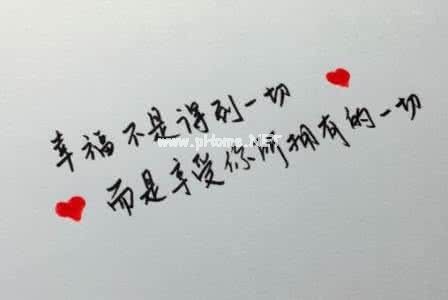 幸福不是得到一切
www.pHome.NET
而是享受你所拥有的一切